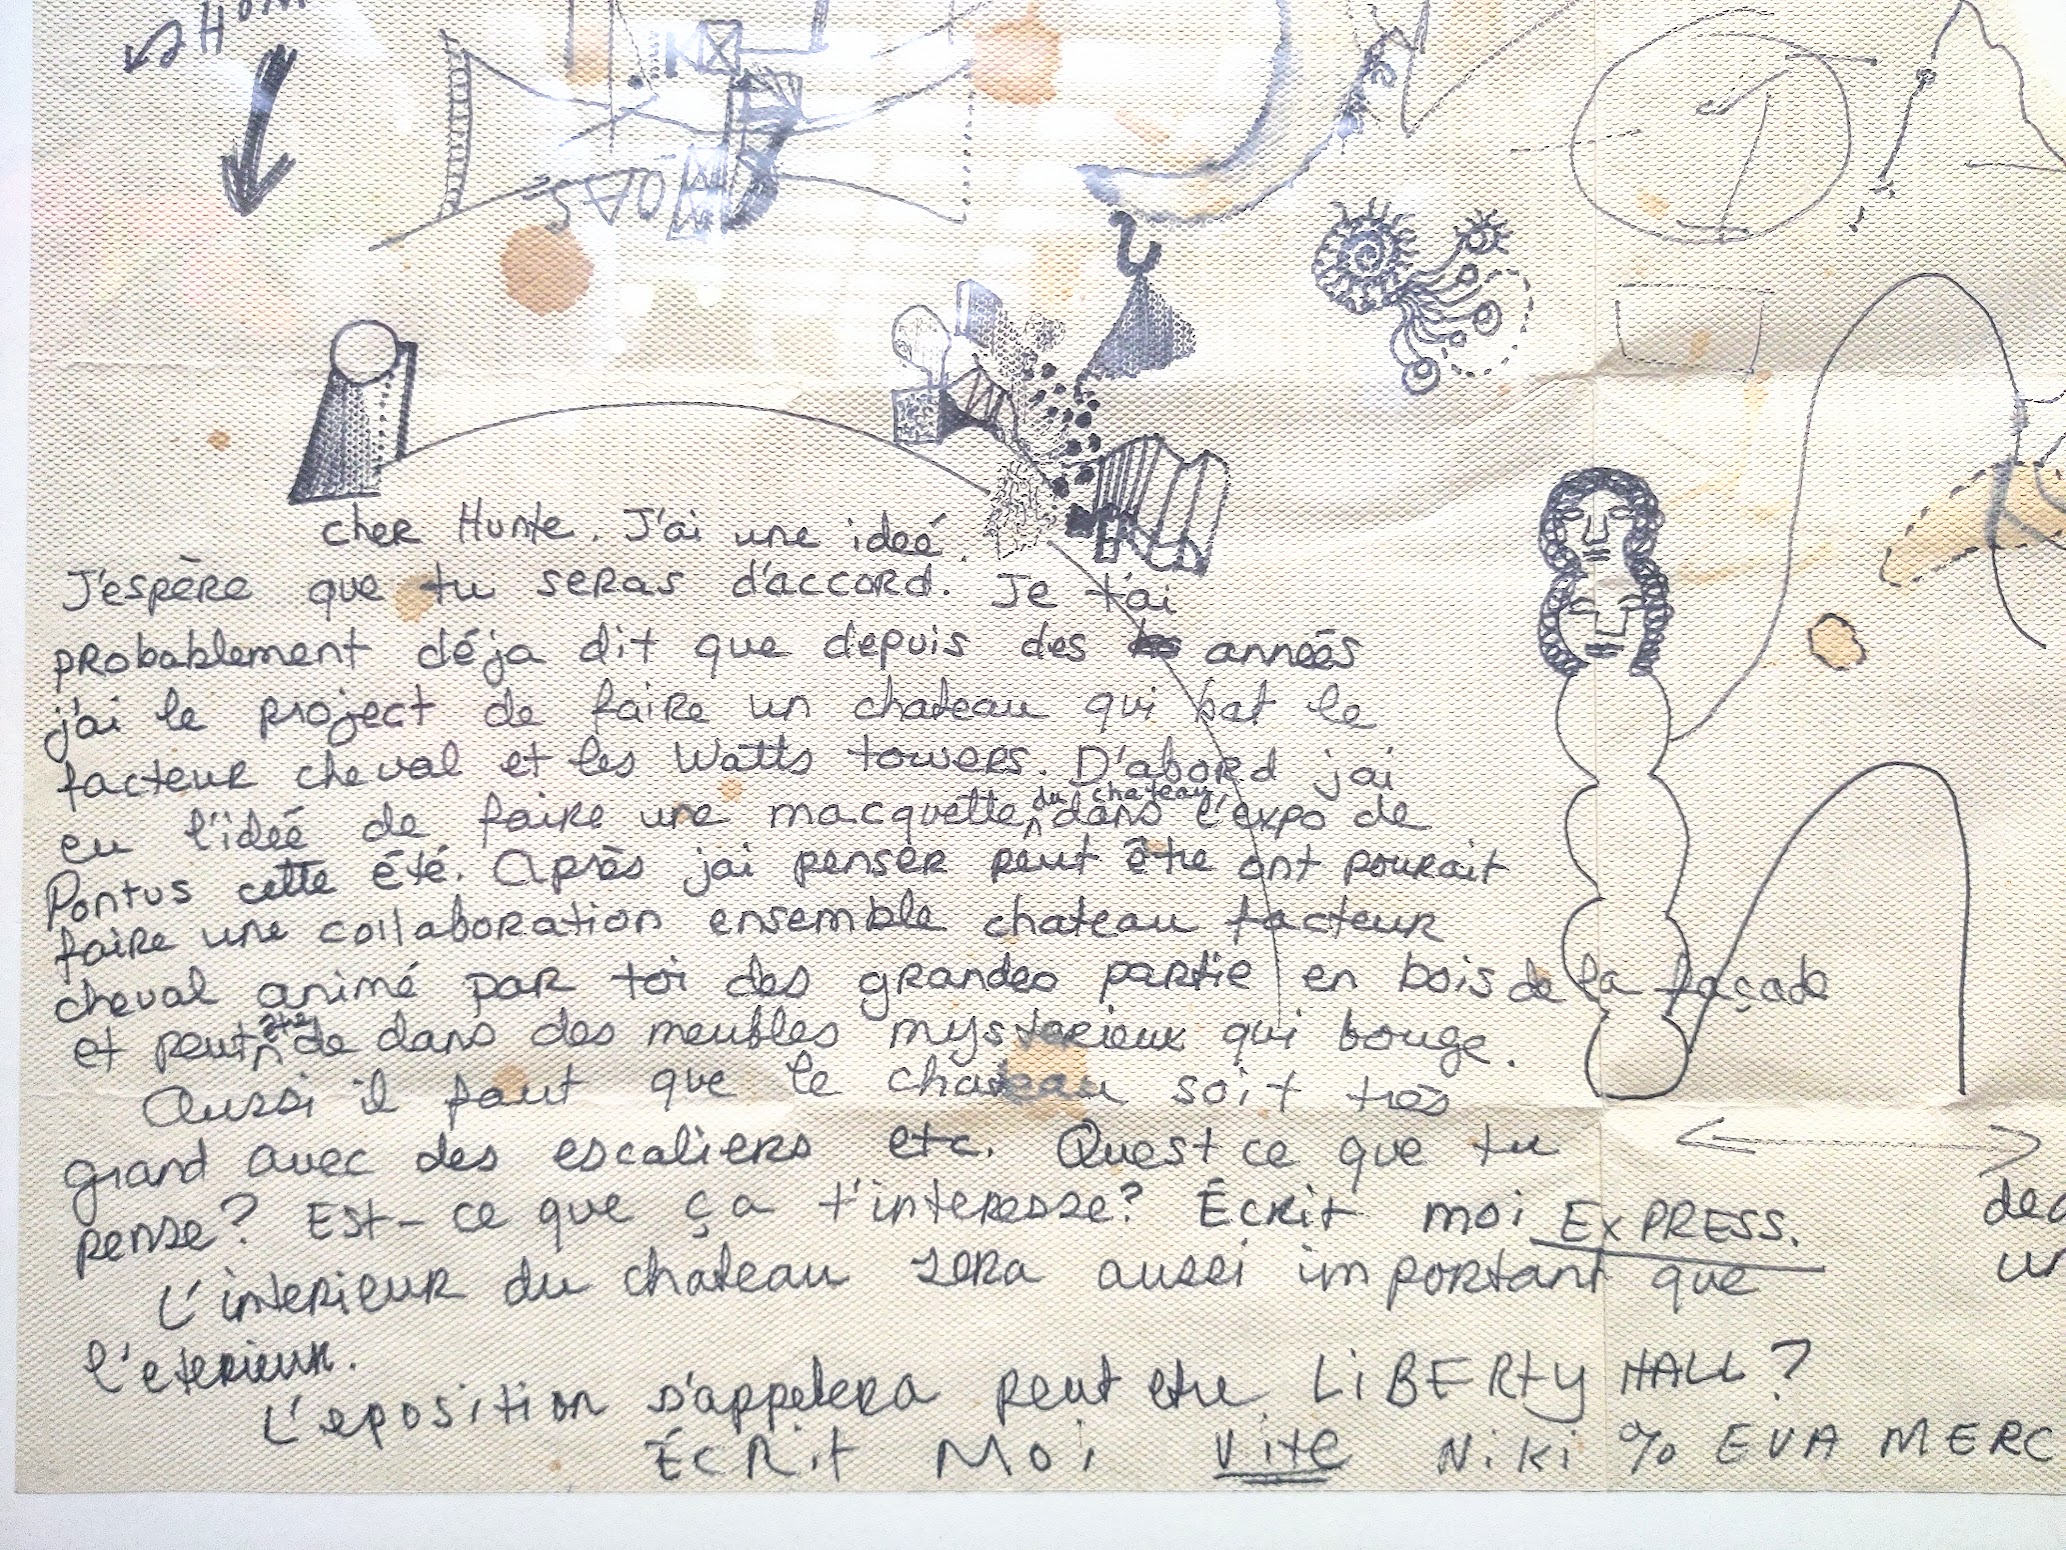 cher Hunte. J'ai une ideé.
J'espère que tu seras d'accord. Je t'ai
probablement déja dit que depuis des années
j'ai le project de faire un chateau qui bat le
facteur cheval et les Watts towers. D'abord j'ai
eu l'ideé de faire une macquette du chateau dans l'expo de
Pontus cette été. Après j'ai penser peut être ont pourait
faire une collaboration ensemble chateau facteur
cheval animé par toi des grandes partie en bois de la façade
et peut être de dans des meubles mysterieux qui bouge.
Aussi il faut que le chateau soit très
grand avec des escaliers etc. Quest ce que tu
pense? Est-ce que ça t'interesse? Écrit moi EXPRESS.
L'interieur du chateau sera aussi important que
l'eterieur.
L'eposition s'appelera peut etre LiBERty HALL?
ÉCRit Moi Vite Niki % EVA MERC